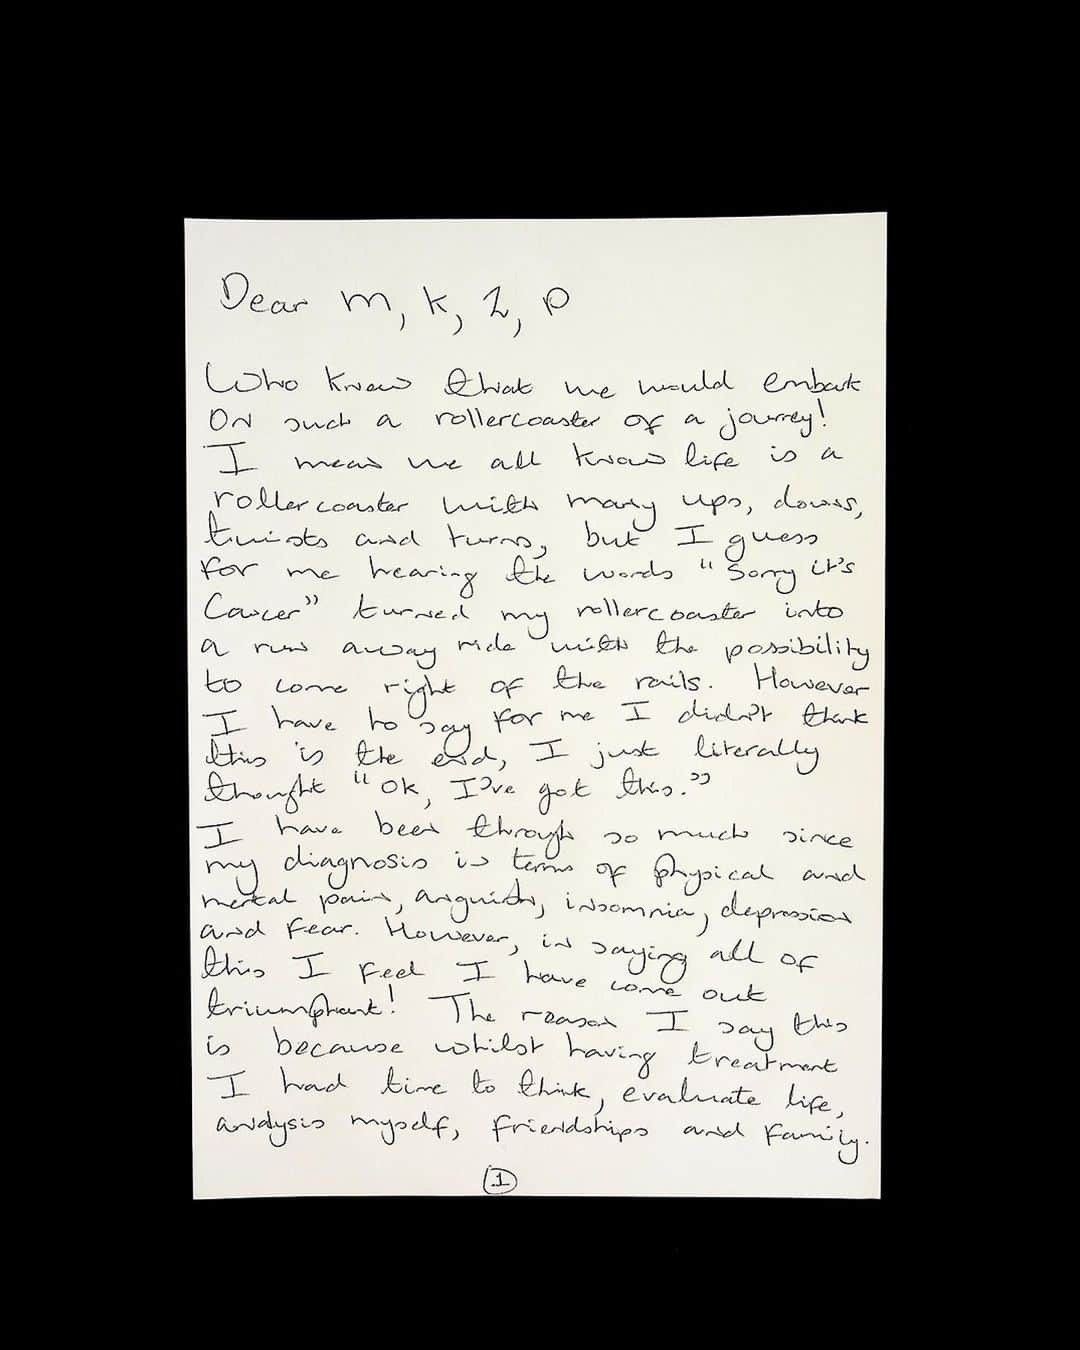 Dear M, K, Z, P
Who knew that we would embark
on such a rollercoaster of a journey!
I mean we all know life is a
rollercoaster with many ups, downs,
twists and turns, but I guess
for me hearing the words "Sorry it's
Cancer" turned my rollercoaster into
a run away ride with the possibility
to come right of the rails. However
I have to say for me I didn't think
this is the end, I just literally
thought "Ok, I've got this."
I have been through so much since
my diagnosis in terms of physical and
mental pain, anguish, insomnia, depression
and fear. However, in saying all of
this I feel I have come out
triumphant! The reason I say this
is because whilst having treatment
I had time to think, evaluate life,
analysis myself, friendships and family.
1